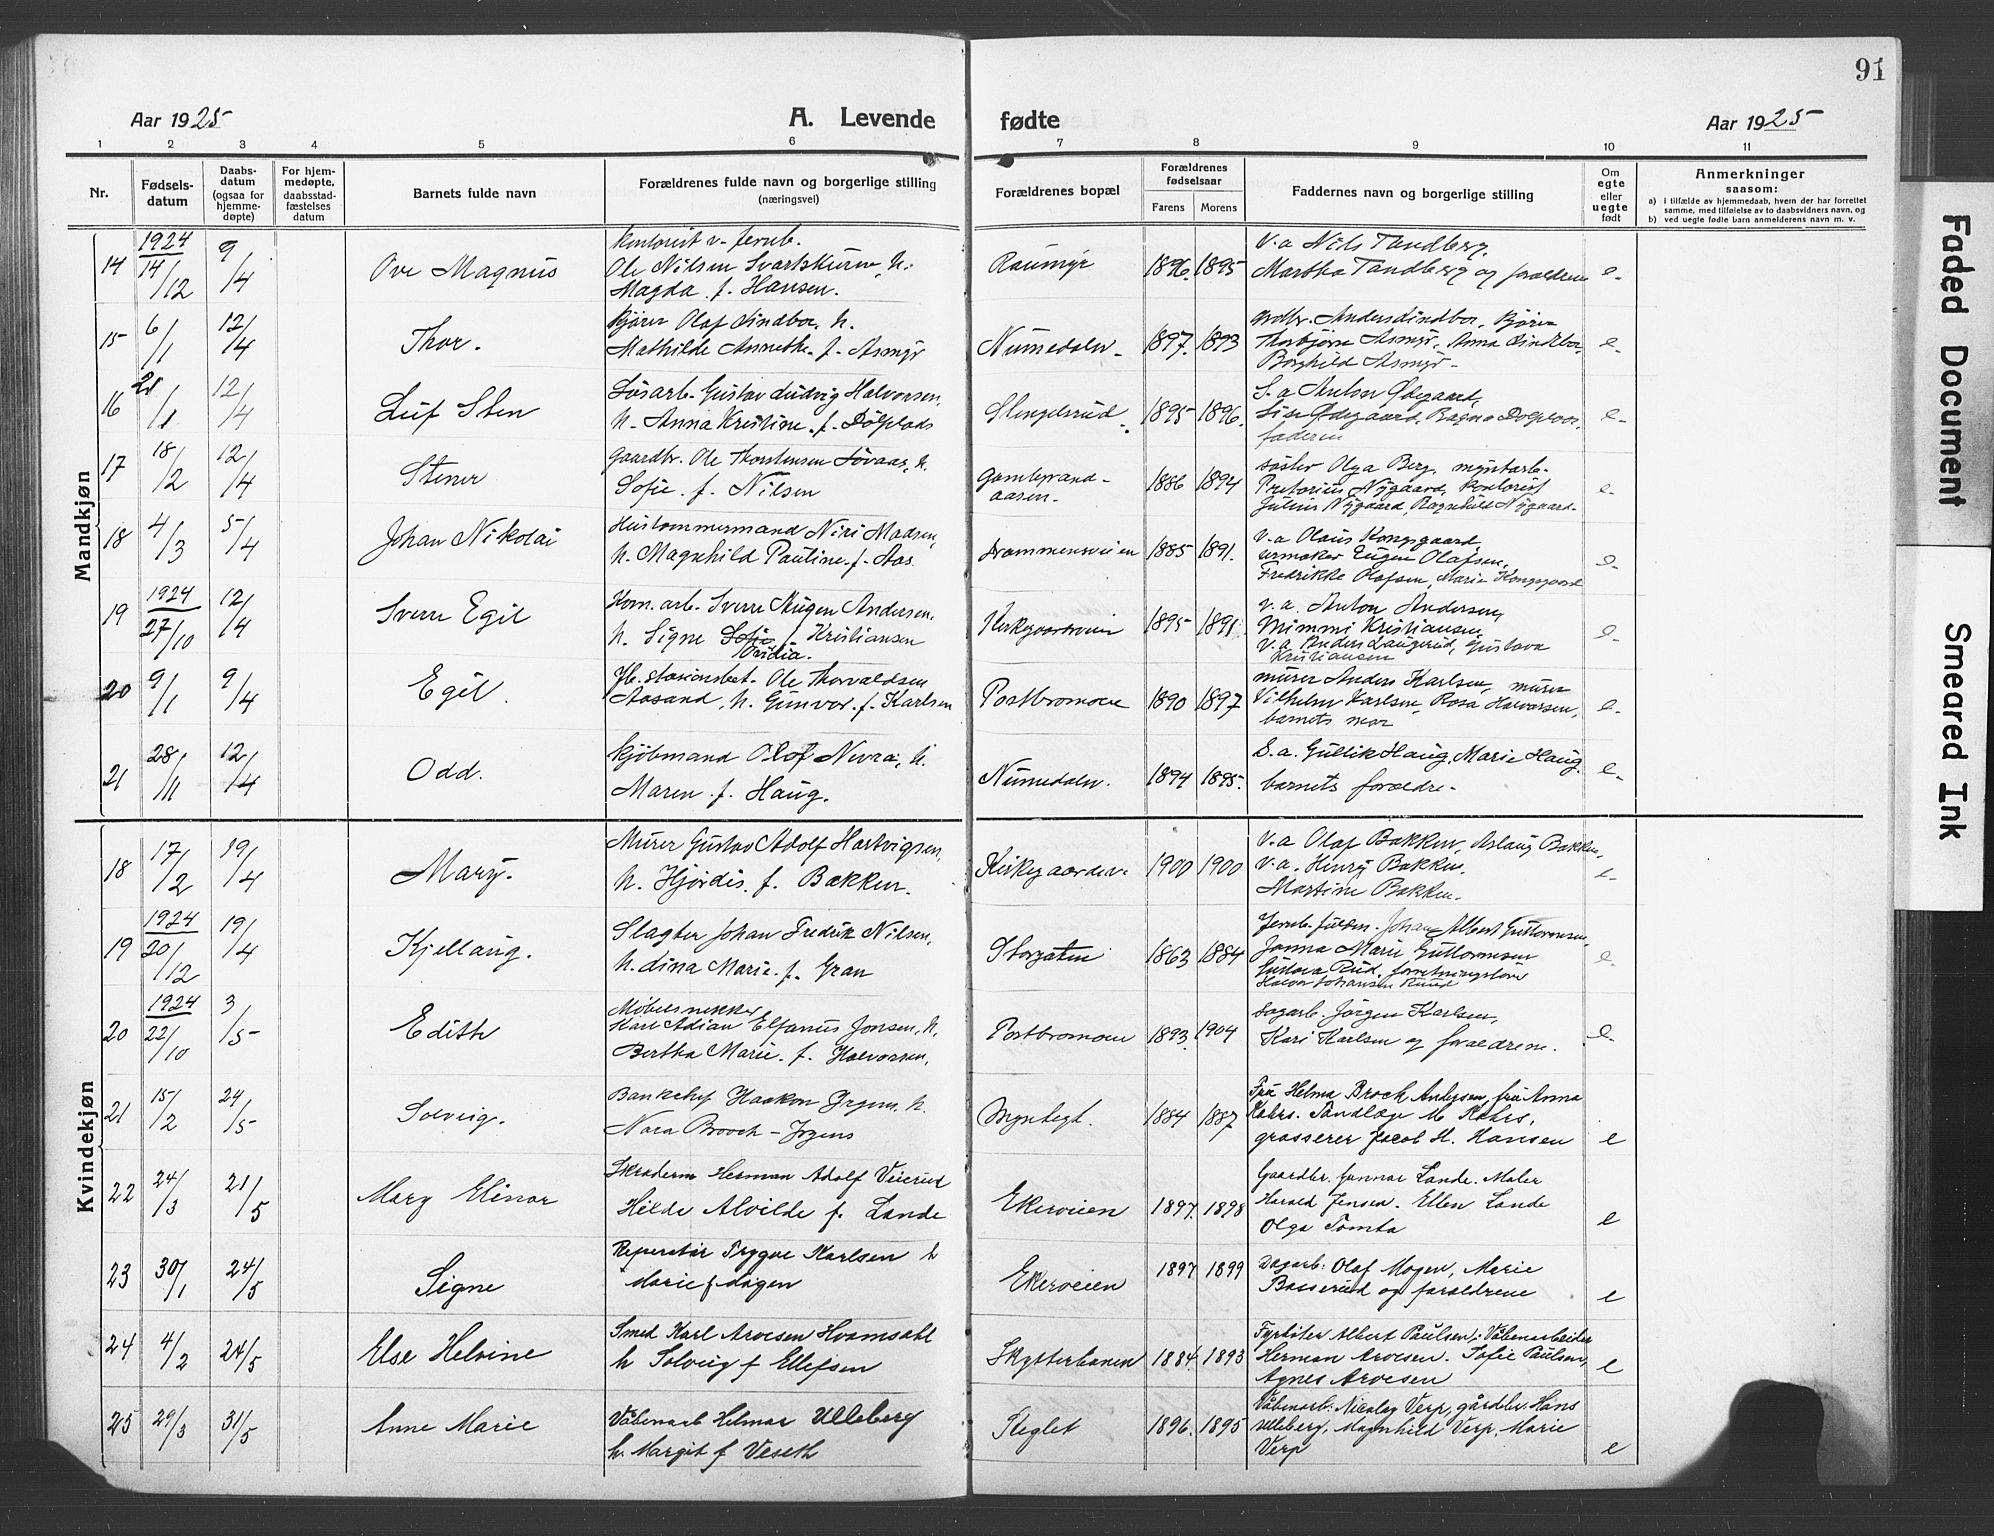 91
Aar 1925
A. Levende fødte
Aar 1925
1 2 3 4 5 6 7 8 9 10 11
Nr.
Fødsels-
datum
Daabs-
datum
(ogsaa for
hjemme-
døpte)
For hjem-
medøpte,
daabsstad-
fæstelses
datum
Barnets fulde navn
Forældrenes fulde navn og borgerlige stilling
(næringsvei)
Forældrenes bopæl
Forældrenes
fødselsaar
Farens Morens
Faddernes navn og borgerlige stilling
Om
egte
eller
uegte
født
Anmerkninger
saasom:
a) i tilfælde av hjemmedaab, hvem der har forrettet
samme, med tilføielse av to daabsvidners navn, og
b) ved uegte fødte barn anmelderens navn m. v.
Mandkjøn
14 1924 14/12 9/4 Ove Magnus
Ole Nilsen Svartskuren, h.
Magda f. Hansen.
Raumyr 1896. 1895
V.a Nils Tandberg,
Martha Tandberg og forældrene e-
15 6/1 12/4 Thor.
Kjører Olaf Lindbo, h.
Mathilde Annethe f. Asmyr
Numedalsv. 1897. 1893
Anders Lindbo, Kjører
Thorbjørn Asmyr, Anna Lindbo,
Borghild Asmyr- e-
16 21/1 12/4 Leif Sten
Løsarb. Gustav Ludvig Halvorsen,
h. Anna Kristine f. Dølplads
Stengelsrud 1895- 1896.
S.a Anton Ødegaard,
Lise Ødegaard, Ragna Dølplads,
faderen e-
17 18/2 12/4 Stener
Gaardbr. Ole Thorstensen Løvaas, h.
Sofie f. Nilsen
Gamlegrand-
aasen- 1886 1894
søster Olga Berg, myntarb.
Pretorius Nygaard, kontorist
Julius Nygaard, Ragnhild Nygaard- e-
18 4/3 5/4 Johan Nikolai
Hustømmermand Niri Madsen,
h. Magnhild Pauline f. Aas.
Drammensveien 1885 1891.
V.a Olaus Kongsgaard
Eugen Olafsen,
Fredrikke Olafsen, Marie Kongsgaard e-
19 1924 27/10 12/4 Sverre Egil
Kom. arb. Sverre Eugen Andersen,
h. Signe Sofie f. Kristiansen
Ovidia.
Kirkegaardsveien 1895- 1891
V.a. Anton Andersen,
Mimmi Kristiansen,
V.a Anders Laugerud, Gustava
Kristiansen e-
20 9/1 9/4 Egil.
Jb. stasionsbet. Ole Thorvaldsen
Aasand, h. Gunvor f. Karlsen
Postbromoen 1890 1897
murer Anders Karlsen, murer
Vilhelm Karlsen, Rosa Halvorsen,
barnets mor e-
21 28/11 12/4 Odd.
Kjøbmand Olaf Nuvra, h.
Maren f. Haug.
Numedalsv. 1894 1895.
S.a. Gullik Haug, Marie Haug
barnets forældre- e-
Kvindekjøn
18 17/2 19/4 Mary.
Murer Gustav Adolf Hartvigsen,
h. Hjørdis f. Bakken.
Kirkegaardsv. 1900 1900
V.a Olaf Bakken, Aslaug Bakken,
V.a. Henry Bakken,
Martine Bakken. e-
19 1924 20/12 19/4 Kjellaug.
Slagter Johan Fredrik Nilsen,
h. Lina Marie f. Gran
Storgaten 1863 1884
Johan Albert Guttormsen,
Janna Marie Guttormsen
Gustava Rud,
Halvor Johansen Ruud e-
20 1924 22/10 3/5 Edith
Møbelsnekker
Karl Adian Elfanus Jonsen, h.
Bertha Marie f. Halvorsen,
Postbromoen 1893. 1904
Sagarb. Jørgen Karlsen,
Kari Karlsen og forældrene. e-
21 15/2 24/5 Solveig.
Bankchef Haakon Jrgens h.
Nora Broch-Jrgens
Myntegt. 1884 1887
Fru Helma Broch Andersen, fru Anna
Kahrs. Tandlæge M Kahrs,
grosserer Jacob H. Hansen e
22 24/3 21/5 Mary Elinor
Skræderm Herman Adolf Veierud
Hilde Alvilde f. Lande
Ekerveien 1897. 1898
Gaardbr. Gunnar Lande. Maler
Harald Jensen. Ellen Lande
Olga Tomta e
23 30/1 24/5 Signe
Reperatør Trygve Karlsen h
Marie f Mogen
Ekerveien 1897 1899
Dagarb: Olaf Mogen, Marie
Basserud og forældrene e
24 4/2 24/5 Else Helvine
Smed Karl Arvesen Hvamsahl
h Solveig f Ellefsen
Skytterbanen 1884. 1893
Fyrbøter Albert Paulsen, Våbenarbeider
Herman Arvesen. Sofie Paulsen,
Agnes Arvesen e
25 29/3 31/5 Anne Marie
Våbenarb Helmer Ulleberg
h. Margit f Veseth
Teglet 1896. 1895
Våbenarb: Nicolay Verp, gårdbr. Hans
Ulleberg, Magnhild Verp, Marie
Verp e
Faded Document
Smeared Ink